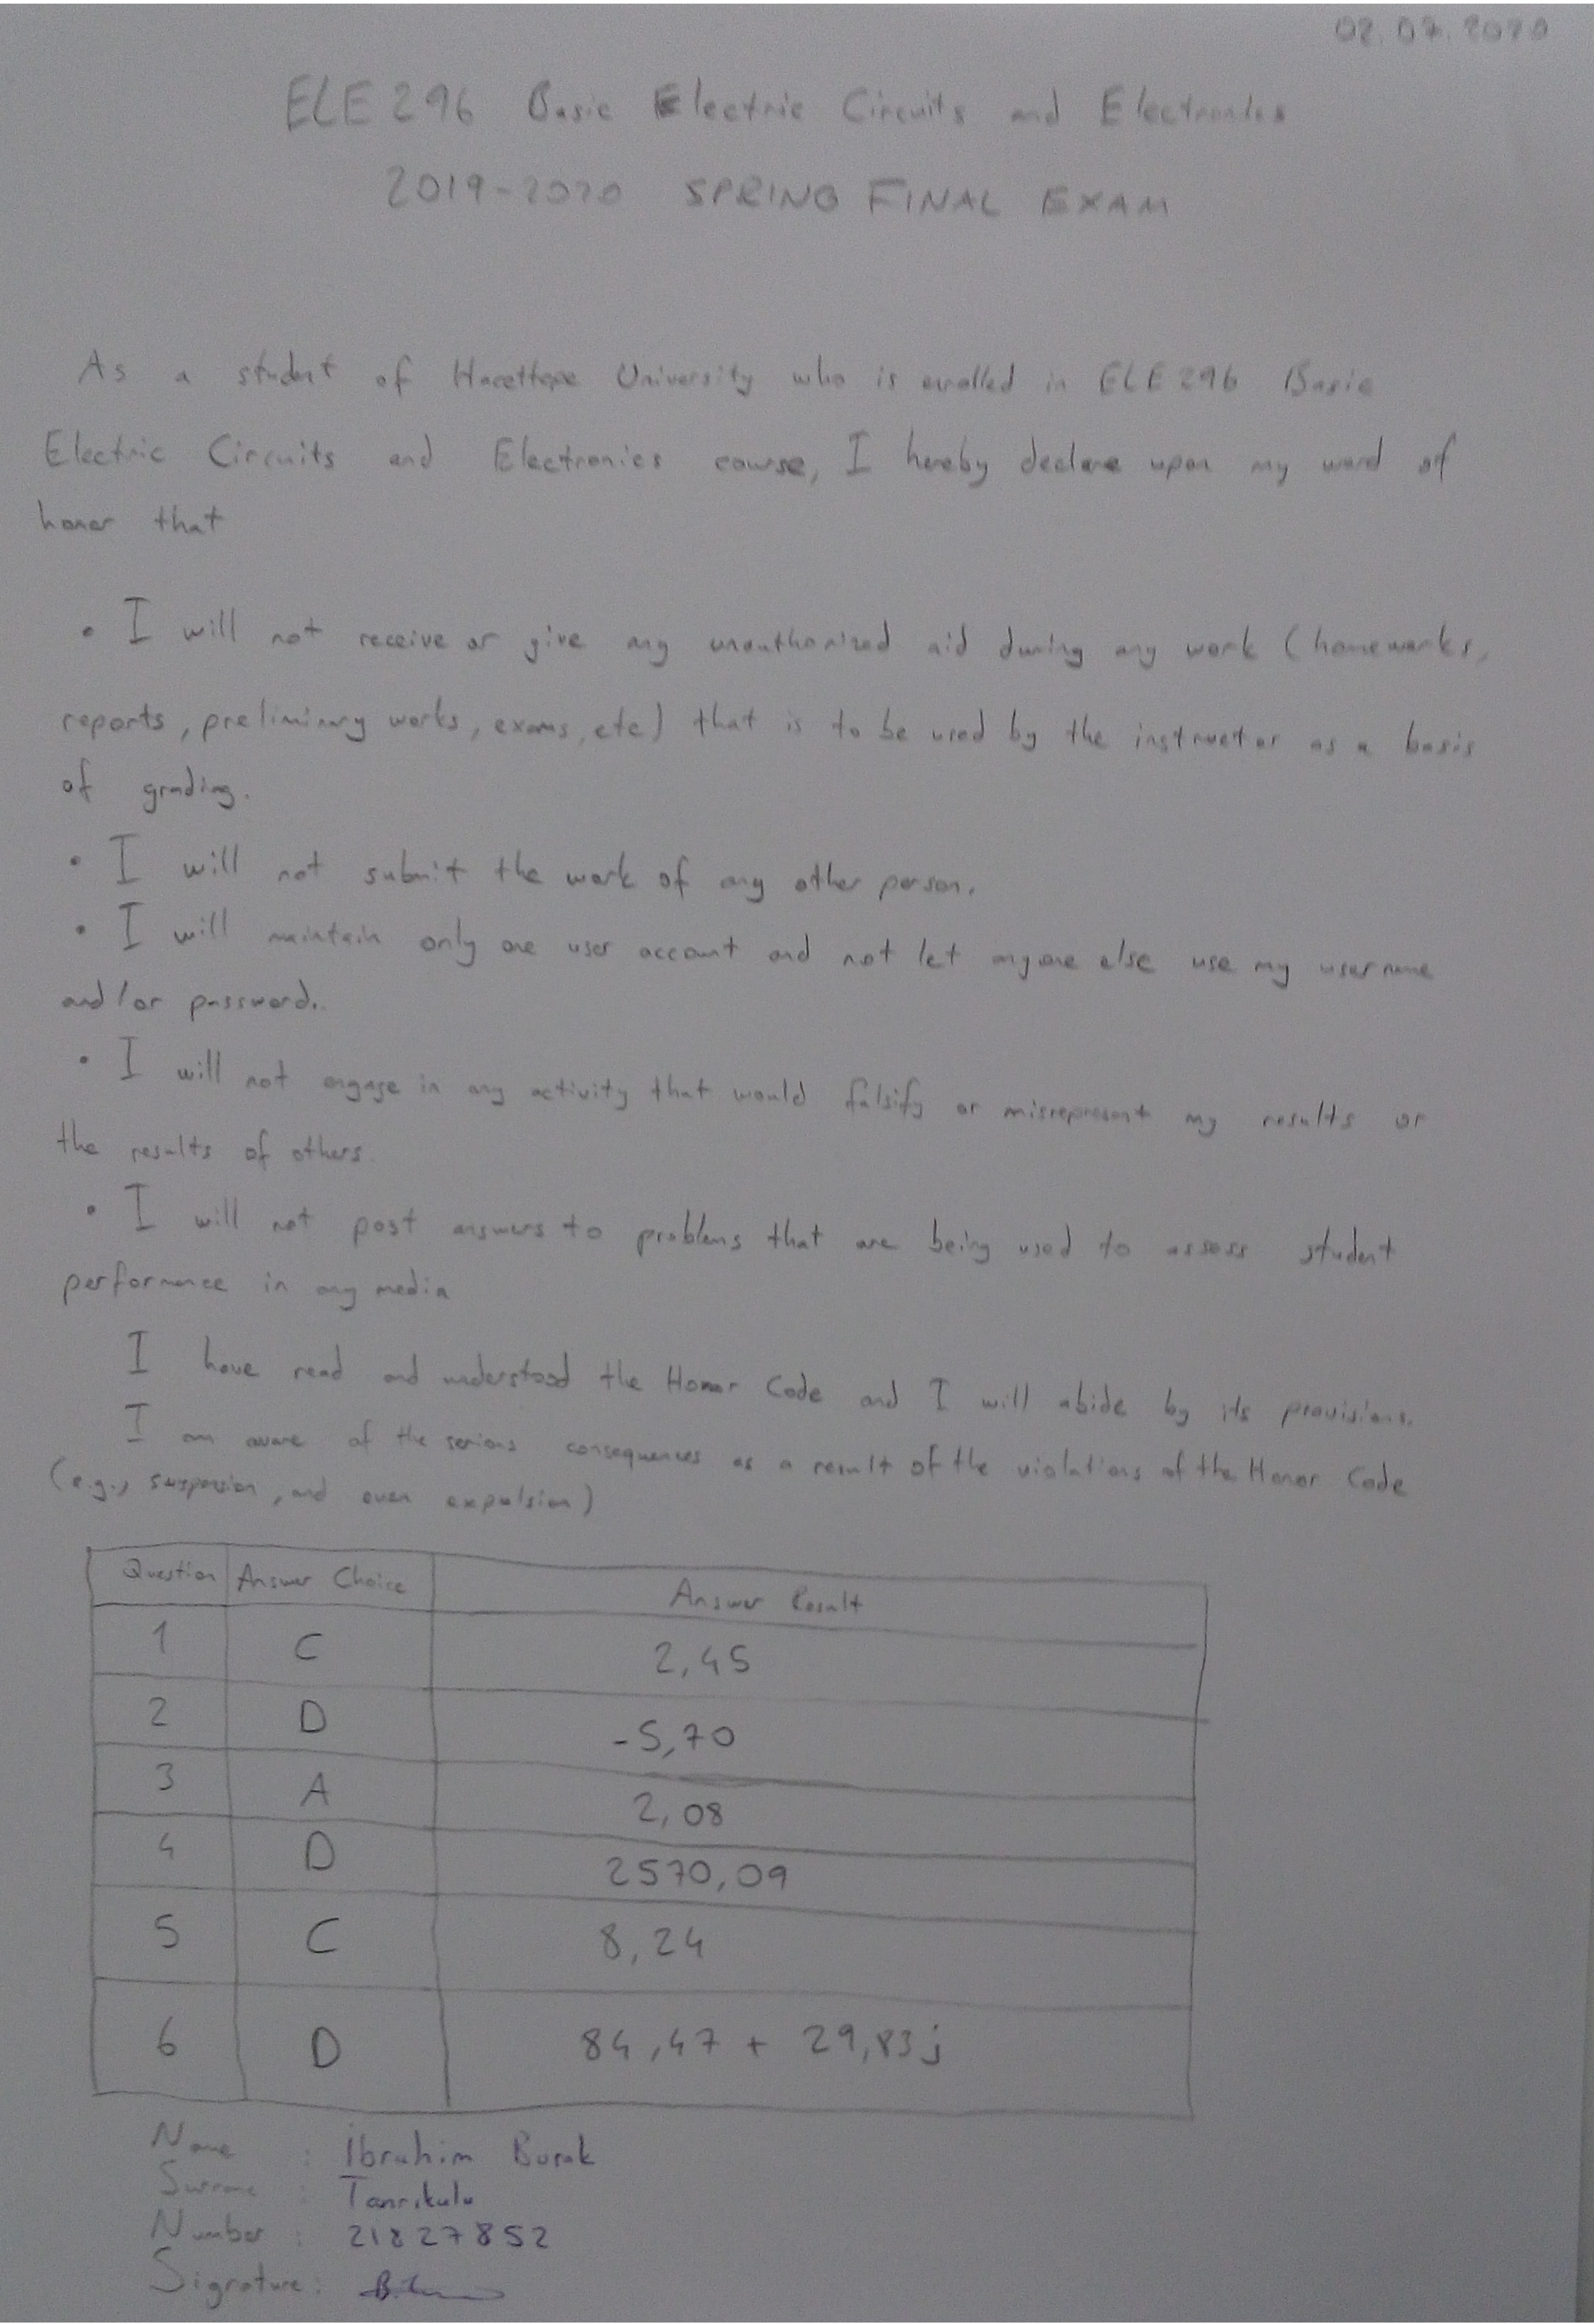 02.07.2020
ELE 296 Basic Electric Circuits and Electronics
2019-2020 SPRING FINAL EXAM
As a student of Hacettepe University who is enrolled in ELE 296 Basic
Electric Circuits and Electronics course, I hereby declare upon my word of
honor that
• I will not receive or give any unauthorized aid during any work (homeworks,
reports, preliminary works, exams, etc) that is to be used by the instructor as a basis
of grading.
• I will not submit the work of any other person.
• I will maintain only one user account and not let anyone else use my username
and/or password.
• I will not engage in any activity that would falsify or misrepresent my results or
the results of others.
• I will not post answers to problems that are being used to assess student
performance in any media
I have read and understood the Honor Code and I will abide by its provisions.
I am aware of the serious consequences as a result of the violations of the Honor Code
(e.g., suspension, and even expulsion)
Question Answer Choice Answer Result
1 C 2,45
2 D -5,70
3 A 2,08
4 D 2570,09
5 C 8,24
6 D 84,47 + 29,83j
Name : İbrahim Burak
Surname : Tanrikulu
Number : 21827852
Signature: